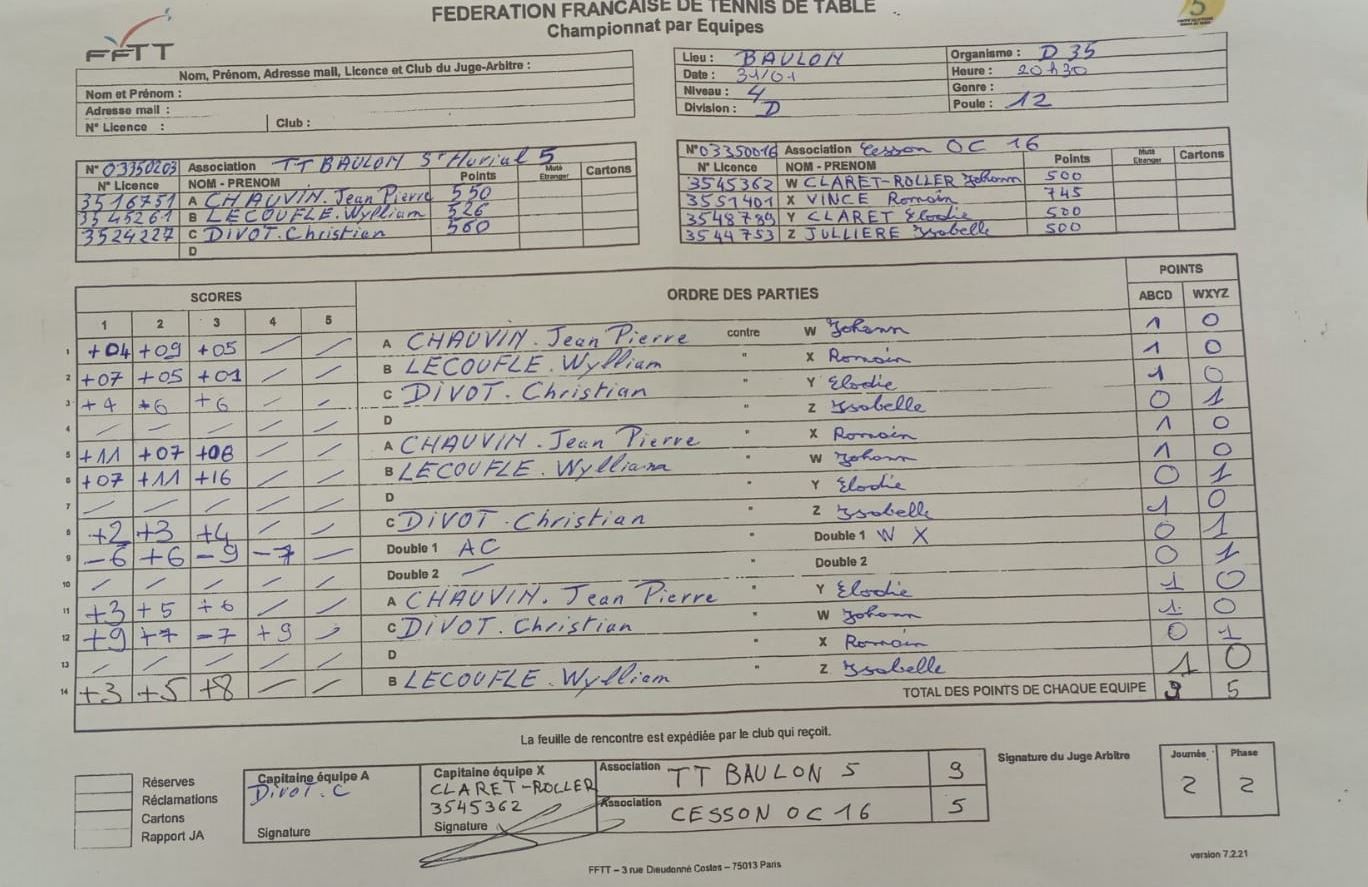 FEDERATION FRANCAISE DE TENNIS DE TABLE
Championnat par Equipes
FFTT
5
Nom, Prénom, Adresse mail, Licence et Club du Juge-Arbitre :
Nom et Prénom :
Adresse mail :
N° Licence : Club :
Lieu : BAULON Organisme : D 35
Date : 31/01 Heure : 20h30
Niveau : 4 Genre :
Division : D Poule : 12
N° 03350203 Association TT BAULON St Thurial 5
N° Licence NOM - PRENOM Points Muté Etranger Cartons
3516751 A CHAUVIN. Jean Pierre 550
3545261 B LECOUFLE. Wylliam 526
3524227 C DIVOT. Christian 560
D
N° 03350016 Association Cesson OC 16
N° Licence NOM - PRENOM Points Muté Etranger Cartons
3545362 W CLARET-ROLLER Yohann 500
3551401 X VINCE Romain 745
3548789 Y CLARET Elodie 500
3544753 Z JULLIERE Isabelle 500
SCORES ORDRE DES PARTIES POINTS
1 2 3 4 5 ABCD WXYZ
1 +04 +09 +05 / / A CHAUVIN. Jean Pierre contre W Yohann 1 0
2 +07 +05 +01 / / B LECOUFLE. Wylliam " X Romain 1 0
3 +4 +6 +6 / / C DIVOT. Christian " Y Elodie 1 0
4 / / / / / D " Z Isabelle 0 1
5 +11 +07 +08 / / A CHAUVIN. Jean Pierre " X Romain 1 0
6 +07 +11 +16 / / B LECOUFLE. Wylliam " W Yohann 1 0
7 / / / / / D " Y Elodie 0 1
8 +2 +3 +4 / / C DIVOT. Christian " Z Isabelle 1 0
9 -6 +6 -9 -7 / Double 1 AC " Double 1 W X 0 1
10 / / / / / Double 2 / " Double 2 0 1
11 +3 +5 +6 / / A CHAUVIN. Jean Pierre " Y Elodie 1 0
12 +9 +7 -7 +9 / C DIVOT. Christian " W Yohann 1 0
13 / / / / / D " X Romain 0 1
14 +3 +5 +8 / / B LECOUFLE. Wylliam " Z Isabelle 1 0
TOTAL DES POINTS DE CHAQUE EQUIPE 9 5
La feuille de rencontre est expédiée par le club qui reçoit.
Réserves
Réclamations
Cartons
Rapport JA
Capitaine équipe A
DIVOT. C
Signature
Capitaine équipe X
CLARET-ROLLER
3545362
Signature
Association TT BAULON 5 9
Association CESSON OC 16 5
Signature du Juge Arbitre
Journée Phase
2 2
version 7.2.21
FFTT – 3 rue Dieudonné Costes – 75013 Paris